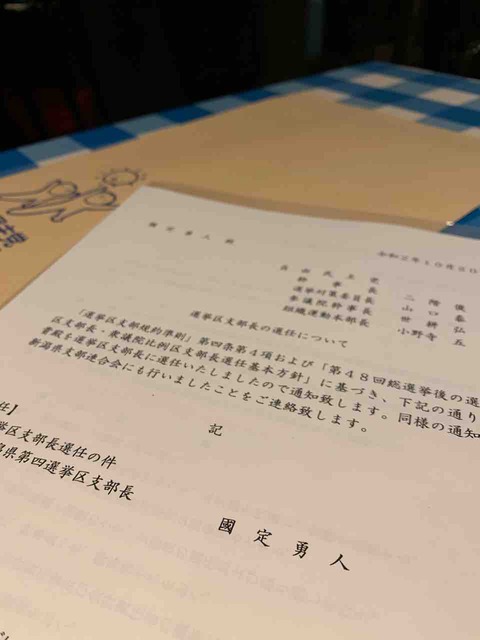 國定勇人殿
令和2年10月
自由民主党
幹事長 二階俊
選挙対策委員長 山口泰
参議院幹事長 世耕弘
組織運動本部長 小野寺五
選挙区支部長の選任について
「選挙区支部規約準則」第四条第4項および「第48回総選挙後の選
区支部長・衆議院比例区支部長選任基本方針」に基づき、下記の通り
貴殿を選挙区支部長に選任いたしましたので通知致します。同様の通知
新潟県支部連合会にも行いましたことをご連絡致します。
記
任】
挙区支部長選任の件
潟県第四選挙区支部長
國定勇人